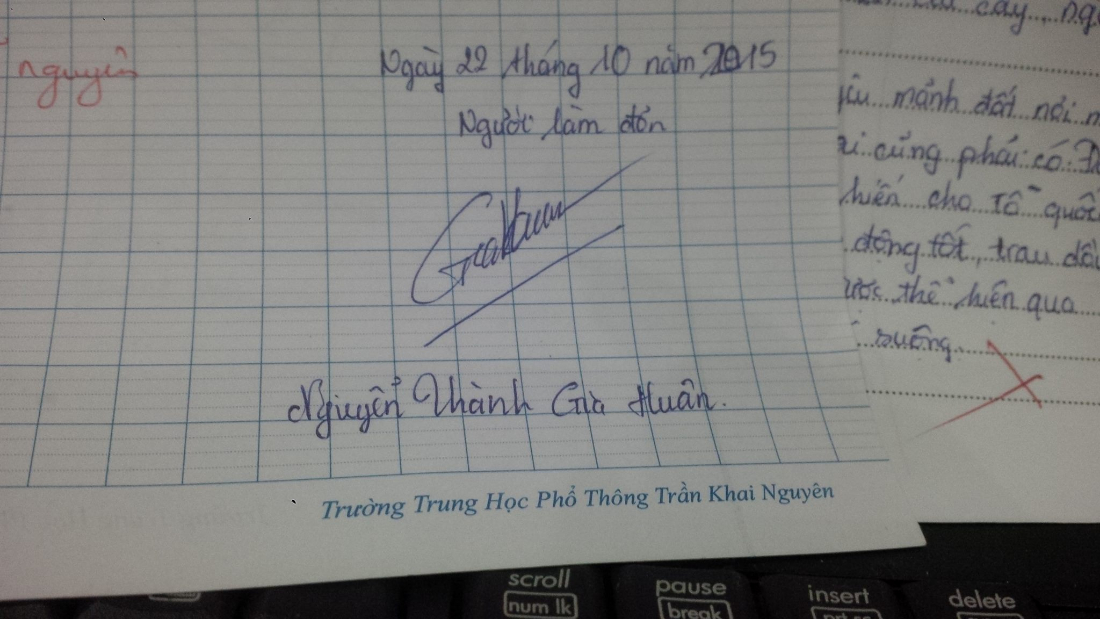 nguyên
Ngày 22 tháng 10 năm 2015
Người làm đơn
Nguyễn Thành Gia Huân.
Trường Trung Học Phổ Thông Trần Khai Nguyên
cây, ng
mảnh đất nơi
cũng phải có
hiến cho Tổ quốc
động tốt, trau dồi
thể hiện qua
suông.
scroll
num lk
pause
break
insert
delete